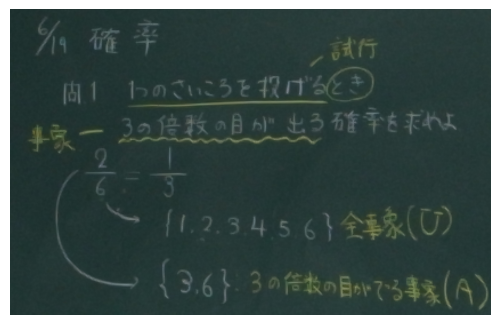 6/19 確率
試行
問1 1つのさいころを投げるとき
事象 3の倍数の目が出る確率を求めよ
2/6 = 1/3
{1.2.3.4.5 6} 全事象(U)
{3,6}. 3の倍数の目がでる事象(A)